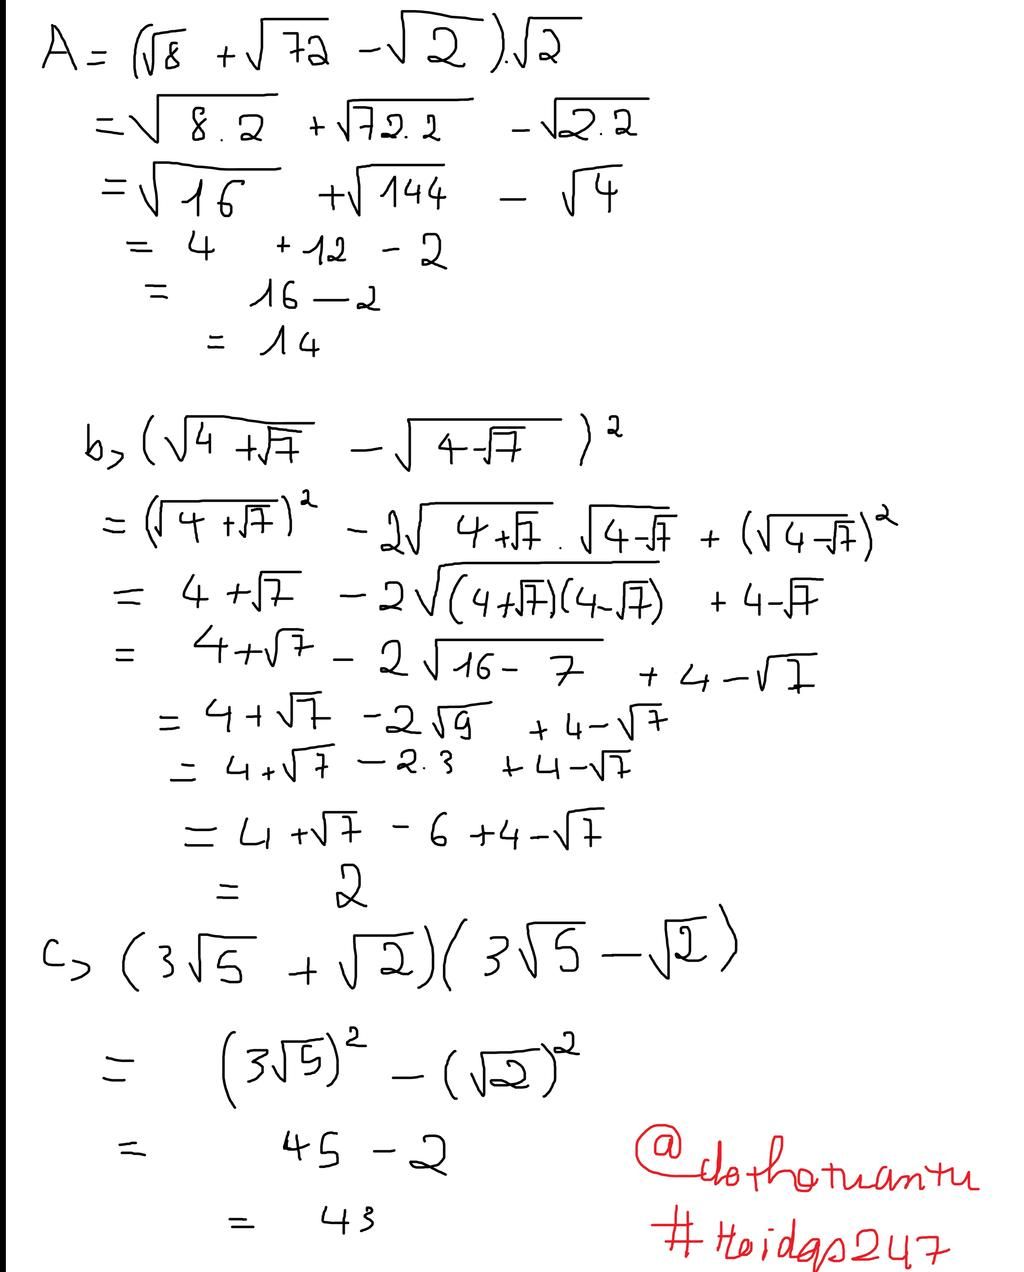 A = (√8 + √72 - √2).√2
= √8.2 + √72.2 - √2.2
= √16 + √144 - √4
= 4 + 12 - 2
= 16 - 2
= 14
b, (√4+√7 - √4-√7)²
= (√4+√7)² - 2√4+√7 . √4-√7 + (√4-√7)²
= 4+√7 - 2√(4+√7)(4-√7) + 4-√7
= 4+√7 - 2√16-7 + 4-√7
= 4+√7 - 2√9 + 4-√7
= 4+√7 - 2.3 + 4-√7
= 4+√7 - 6 + 4-√7
= 2
c, (3√5 + √2)(3√5 - √2)
= (3√5)² - (√2)²
= 45 - 2
= 43
@dothotuantu
#Hoidap247